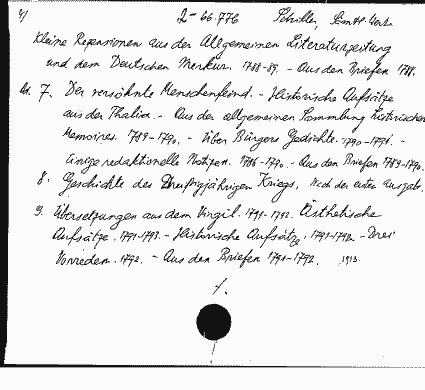 4) 2-66.776 Schiller, Sämtl. Werke
Kleine Rezensionen aus der Allgemeinen Literaturzeitung
und dem Deutschen Merkur. 1788-89. - Aus den Briefen 1788.
Bd. 7. Der versöhnte Menschenfeind. - Historische Aufsätze
aus der Thalia. - Aus der allgemeinen Sammlung historischer
Memoires. 1789-1790. - Über Bürgers Gedichte. 1790-1791. -
Einige redaktionelle Notizen. 1786-1790. - Aus den Briefen 1789-1790.
8. Geschichte des Dreißigjährigen Kriegs, nach der ersten Ausgabe.
9. Übersetzungen aus dem Virgil. 1791-1792. Ästhetische
Aufsätze. 1791-1793. - Historische Aufsätze. 1791-1792. - Drei
Vorreden. 1792. - Aus den Briefen 1791-1792. 1913.